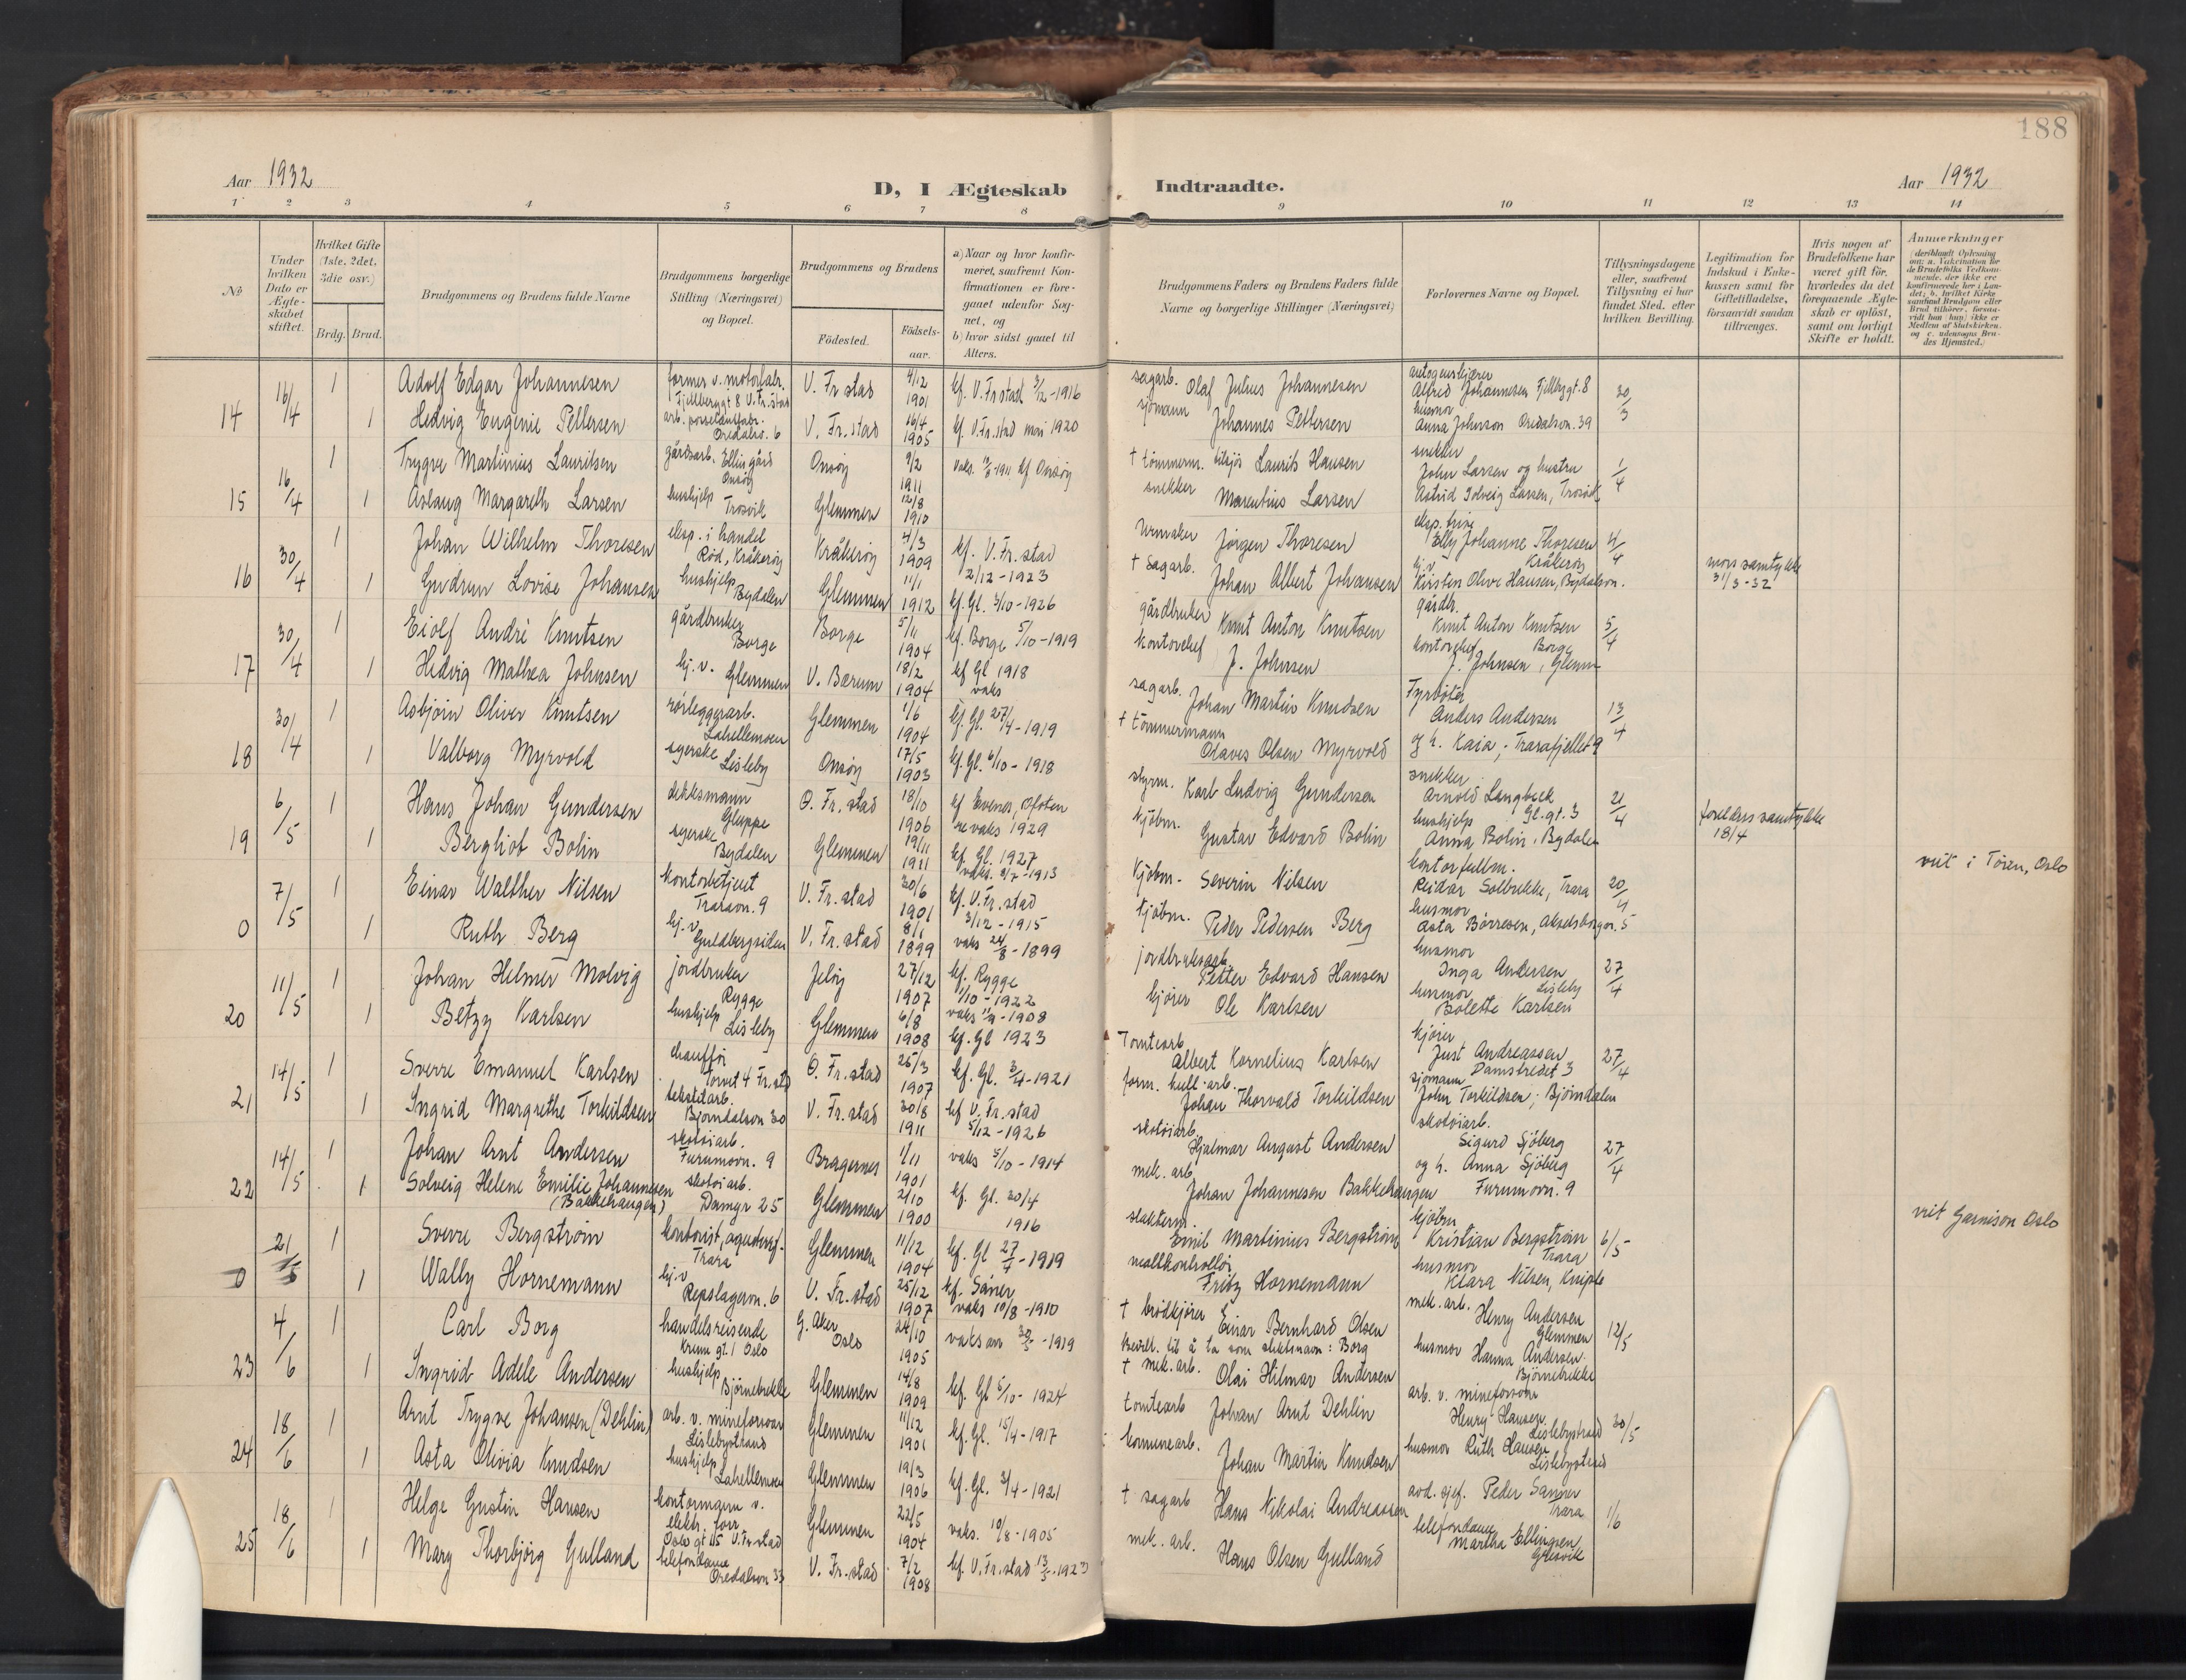 188
Aar 1932
D, I Ægteskab Indtraadte.
Aar 1932
1 2 3 4 5 6 7 8 9 10 11 12 13 14
No
Under hvilken Dato er Ægteskabet stiftet.
Hvilket Gifte (1ste, 2det, 3die osv.)
Brdg. Brud.
Brudgommens og Brudens fulde Navne
Brudgommens borgerlige Stilling (Næringsvei) og Bopæl.
Brudgommens og Brudens
Födested.
Födselsaar.
a) Naar og hvor konfirmeret, saafremt Konfirmationen er foregaaet udenfor Sognet, og
b) hvor sidst gaaet til Alters.
Brudgommens Faders og Brudens Faders fulde Navne og borgerlige Stillinger (Næringsvei)
Forlovernes Navne og Bopæl.
Tillysningsdagene eller, saafremt Tillysning ei har fundet Sted, efter hvilken Bevilling.
Legitimation for Indskud i Enkekassen samt for Giftetilladelse, forsaavidt saadan tiltrænges.
Hvis nogen af Brudefolkene har været gift för, hvorledes da det foregaaende Ægteskab er oplöst, samt om lovligt Skifte er holdt.
Anmerkninger (deriblandt Oplysning om: a. Vakcination for de Brudefolks Vedkommende, der ikke ere konfirmerede her i Landet; b. hvilket Kirkesamfund Brudgom eller Brud tilhörer, forsaavidt han (hun) ikke er Medlem af Statskirken, og c. udensogns Brudes Hjemsted.)
14 16/4 1 Adolf Edgar Johannesen former v. motorfabr. Fjellbergt 8 V. Fr.stad V. Fr stad 4/12 1901 kf. V. Frstad 3/12-1916 sagarb. Olaf Julius Johannesen Alfred Johannesen Fjellbygt. 8 30/3
1 Hedvig Eugenie Pettersen arb. porselænsfabr. Oredalsv. 6 V. Fr. stad 16/4 1905 kf. V. Fr. stad mai 1920 sjömann Johannes Pettersen husmor Anna Johnson Oredalson. 39
15 16/4 1 Trygve Martinius Lauritsen gårdsarb. Elingård Onsøy Onsøy 9/2 1911 kf Onsøy † tömmerm. Laurits Hansen snekker John Larsen og hustru 1/4
1 Aslaug Margareth Larsen hushjelp Trosvik Glemmen 12/8 1910 snekker Marentius Larsen Astrid Solveig Larsen, Trosvik
16 30/4 1 Johan Wilhelm Thoresen eksp. i handel Rød, Kråkerøy Kråkerøy 4/3 1909 kf. V. Fr. stad 2/12-1923 Urmaker Jørgen Thoresen Elly Johanne Thoresen Kråkerøy 4/4
1 Gudrun Lovise Johansen hushjelp Bydalen Glemmen 11/1 1912 kf. Gl. 3/10-1926 † Sagarb. Johan Albert Johansen hj.v. Kirsten Olive Hansen, Bydalson. mors samtykke 31/3-32
17 30/4 1 Eiolf Andrè Knutsen gårdbruker Borge Borge 5/11 1904 kf. Borge 5/10-1919 gårdbruker Knut Anton Knutsen gårdbr. Knut Anton Knutsen Borge 5/4
1 Hedvig Mathea Johnsen hj. v. Glemmen V. Bærum 18/2 1904 kf Gl 1918 vaks kontorchef J. Johnsen kontorchef J. Johnsen, Glemm
18 30/4 1 Asbjörn Oliver Knutsen rörleggerarb. Lahellemoen Glemmen 1/6 1904 kf. Gl. 27/4-1919 sagarb. Johan Martin Knudsen Fyrböter Anders Andersen 13/4
1 Valborg Myrvold syerske Lisleby Onsøy 17/5 1903 kf. Gl. 6/10-1918 † tömmermann Olaves Olsen Myrvold og h. Kaia; Trarafjellet 9
19 6/5 1 Hans Johan Gundersen dekksmann Gluppe Ø. Fr. stad 18/10 1906 kf Evenes, Ofoten revaks 1929 styrm. Karl Ludvig Gundersen snekker Arnold Langbæk Gl.gt. 3 21/4
1 Bergliot Bolin syerske Bydalen Glemmen 19/11 1911 kf. Gl. 1927 kjöbm. Gustav Edvard Bolin hushjelp Anna Bolin, Bydalen foreldres samtykke 18/4
0 7/5 1 Einar Walther Nilsen kontorbetjent Traraon. 9 V. Fr. stad 30/6 1901 vaks. 3/7-1913 kf. V. Fr. stad 3/12-1915 kjöbm. Severin Nilsen kontorfullm. Reidar Solbrekke, Trara 20/4 viet i Tøien, Oslo
1 Ruth Berg hj. v Guldbergsiden V. Fr. stad 8/1 1899 vaks 24/8-1899 kjöbm. Peder Pedersen Berg husmor Asta Börresen, Akselsborgon. 5
20 11/5 1 Johan Helmer Molvig jordbruker Rygge Jeløy 27/12 1907 kf. Rygge 1/10-1922 jordbruksarb. Petter Edvard Hansen husmor Inga Andersen Lisleby 27/4
1 Betzy Karlsen hushjelp Lisleby Glemmen 6/8 1908 kf. Gl 1923 kjörer Ole Karlsen husmor Bolette Karlsen
21 14/5 1 Sverre Emanuel Karlsen chaufför torvet 4 Fr.std Ø. Fr. stad 25/3 1907 kf. Gl. 3/4-1921 Tomtearb. Albert Kornelius Karlsen kjörer Just Andreassen Damstredet 3 27/4
1 Ingrid Margrethe Torkildsen tekstilarb. Bjorndalson 30 V. Fr. stad 30/8 1911 kf V. Fr. stad 5/12-1926 Johan Thorvald Torkildsen sjömann John Torkildsen; Bjömdalen
22 14/5 1 Johan Arnt Andersen skotöiarb. Furumovn. 9 Bragernes 1/11 1901 vaks 5/10-1914 skotöiarb. Hjalmar August Andersen skotöiarb. Sigurd Sjöberg 27/4
1 Solveig Helene Emilie Johannesen (Bakkehaugen) skotöiarb. Damgr 25 Glemmen 2/10 1900 kf. Gl. 30/4 1916 mek. arb. Johan Johannesen Bakkehaugen og h. Anna Sjöberg Furumovn. 9
0 21/5 1 Sverre Bergström kontorist Trara Glemmen 11/12 1904 kf. Gl 27/4-1919 slakterm. Emil Martinius Bergström kjöbm Kristian Bergström Trara 6/5 viet Garnison Oslo
1 Wally Hornemann hj.v Repslageron. 6 V. Fr. stad 25/12 1907 kf. Såner vaks 10/8-1910 Fritz Hornemann husmor Klara Nilsen, Kniple
23 4/6 1 Carl Borg handelsreisende Krum gt. 1 Oslo G. Aker Oslo 24/10 1905 vaks av 30/5-1919 † brödkjörer Einar Bernhard Olsen Bevill. til å ta som slektsnavn: Borg mek. arb. Henry Andersen Glemmen 12/5
1 Ingrid Adele Andersen hushjelp Björnebekke Glemmen 14/8 1909 kf. Gl 5/10-1924 † mek. arb. Olai Hilmar Andersen husmor Hanna Andersen Björnebekke
24 18/6 1 Arnt Trygve Johansen (Dehlin) arb. v. mineforsvar Lislebystrand Glemmen 11/12 1901 kf. Gl. 15/4-1917 tomtearb Johan Arnt Dehlin arb. v. mineforsvar Henry Hansen Lislebystrand 30/5
1 Asta Olivia Knudsen hushjelp Lahellemoen Glemmen 19/3 1906 kf. Gl. 3/4-1921 komunearb. Johan Martin Knudsen husmor Ruth Hansen Lislebystrand
25 18/6 1 Helge Gustin Hansen kontormann v. elektr. forr. Oslo gt 115 V. Fr stad Glemmen 22/5 1904 vaks. 10/8-1905 † sagarb Hans Nikolai Andreassen avd. sjef. Peder Sanner Trara 1/6
1 Mary Thorbjörg Gulland telefondame Oredalson 33 V. Fr. stad 7/2 1908 kf. V. Fr. stad 13/5-1923 mek. arb. Hans Olsen Gulland telefondame Martha Ellingsen Gresvik